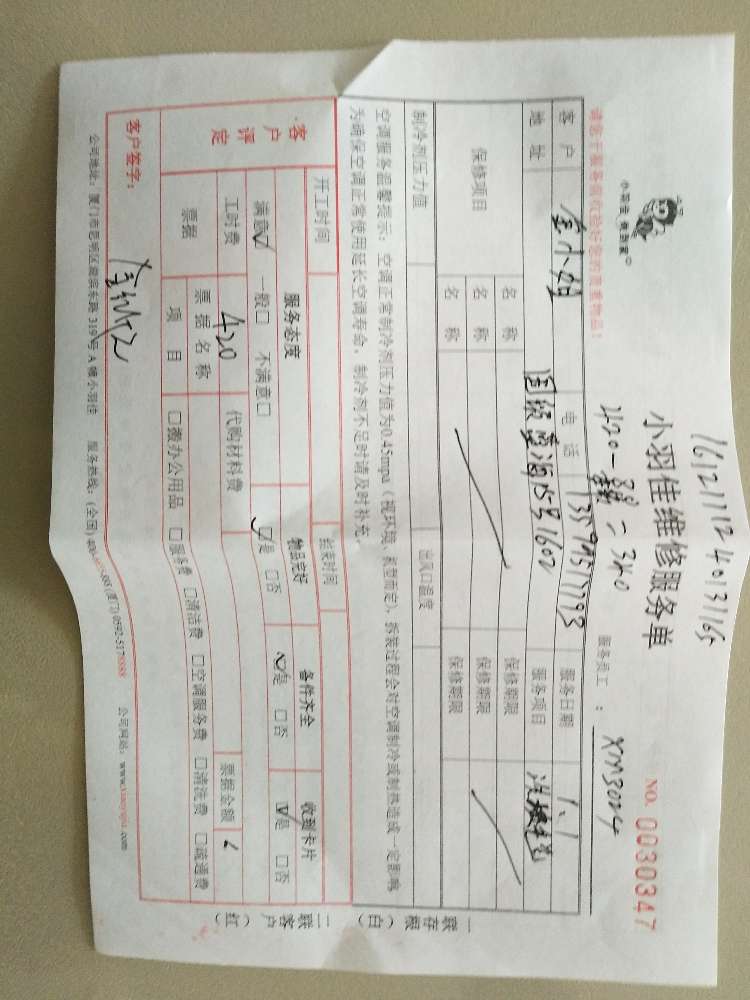 1612111240131165
小羽佳维修服务单
NO. 0030347
小羽佳 来到家
420-80=340
服务员工： XM3004
请您于服务前收拾好您的贵重物品！
客户 金小姐 电话 13799577793 服务日期 1.1
地址 国贸蓝海15号1602 服务项目
保修项目 名称 保修期限
名称 保修期限
名称 保修期限
制冷剂压力值 出风口温度
空调服务温馨提示：空调正常制冷剂压力值为0.45mpa（视环境、机型而定），拆装过程会对空调制冷或制热造成一定影响
为确保空调正常使用延长空调寿命，制冷剂不足时请及时补充。
开工时间 结束时间
客户评定 服务态度 物品完好 备件齐全 收到卡片
满意☑ 一般□ 不满意□ ☑是 □否 ☑是 □否 ☑是 □否
工时费 420 代购材料费 票据金额
票据 票据名称
项目 □搬办公用品 □服务费 □清洁费 □空调服务费 □清洗费 □疏通费
客户签字：
公司地址：厦门市思明区湖滨东路319号A幢小羽佳 服务热线：(全国) (厦门) 0592-5178888 公司网站：www.xiaoyujia.com
一联存根（白）
二联客户（红）